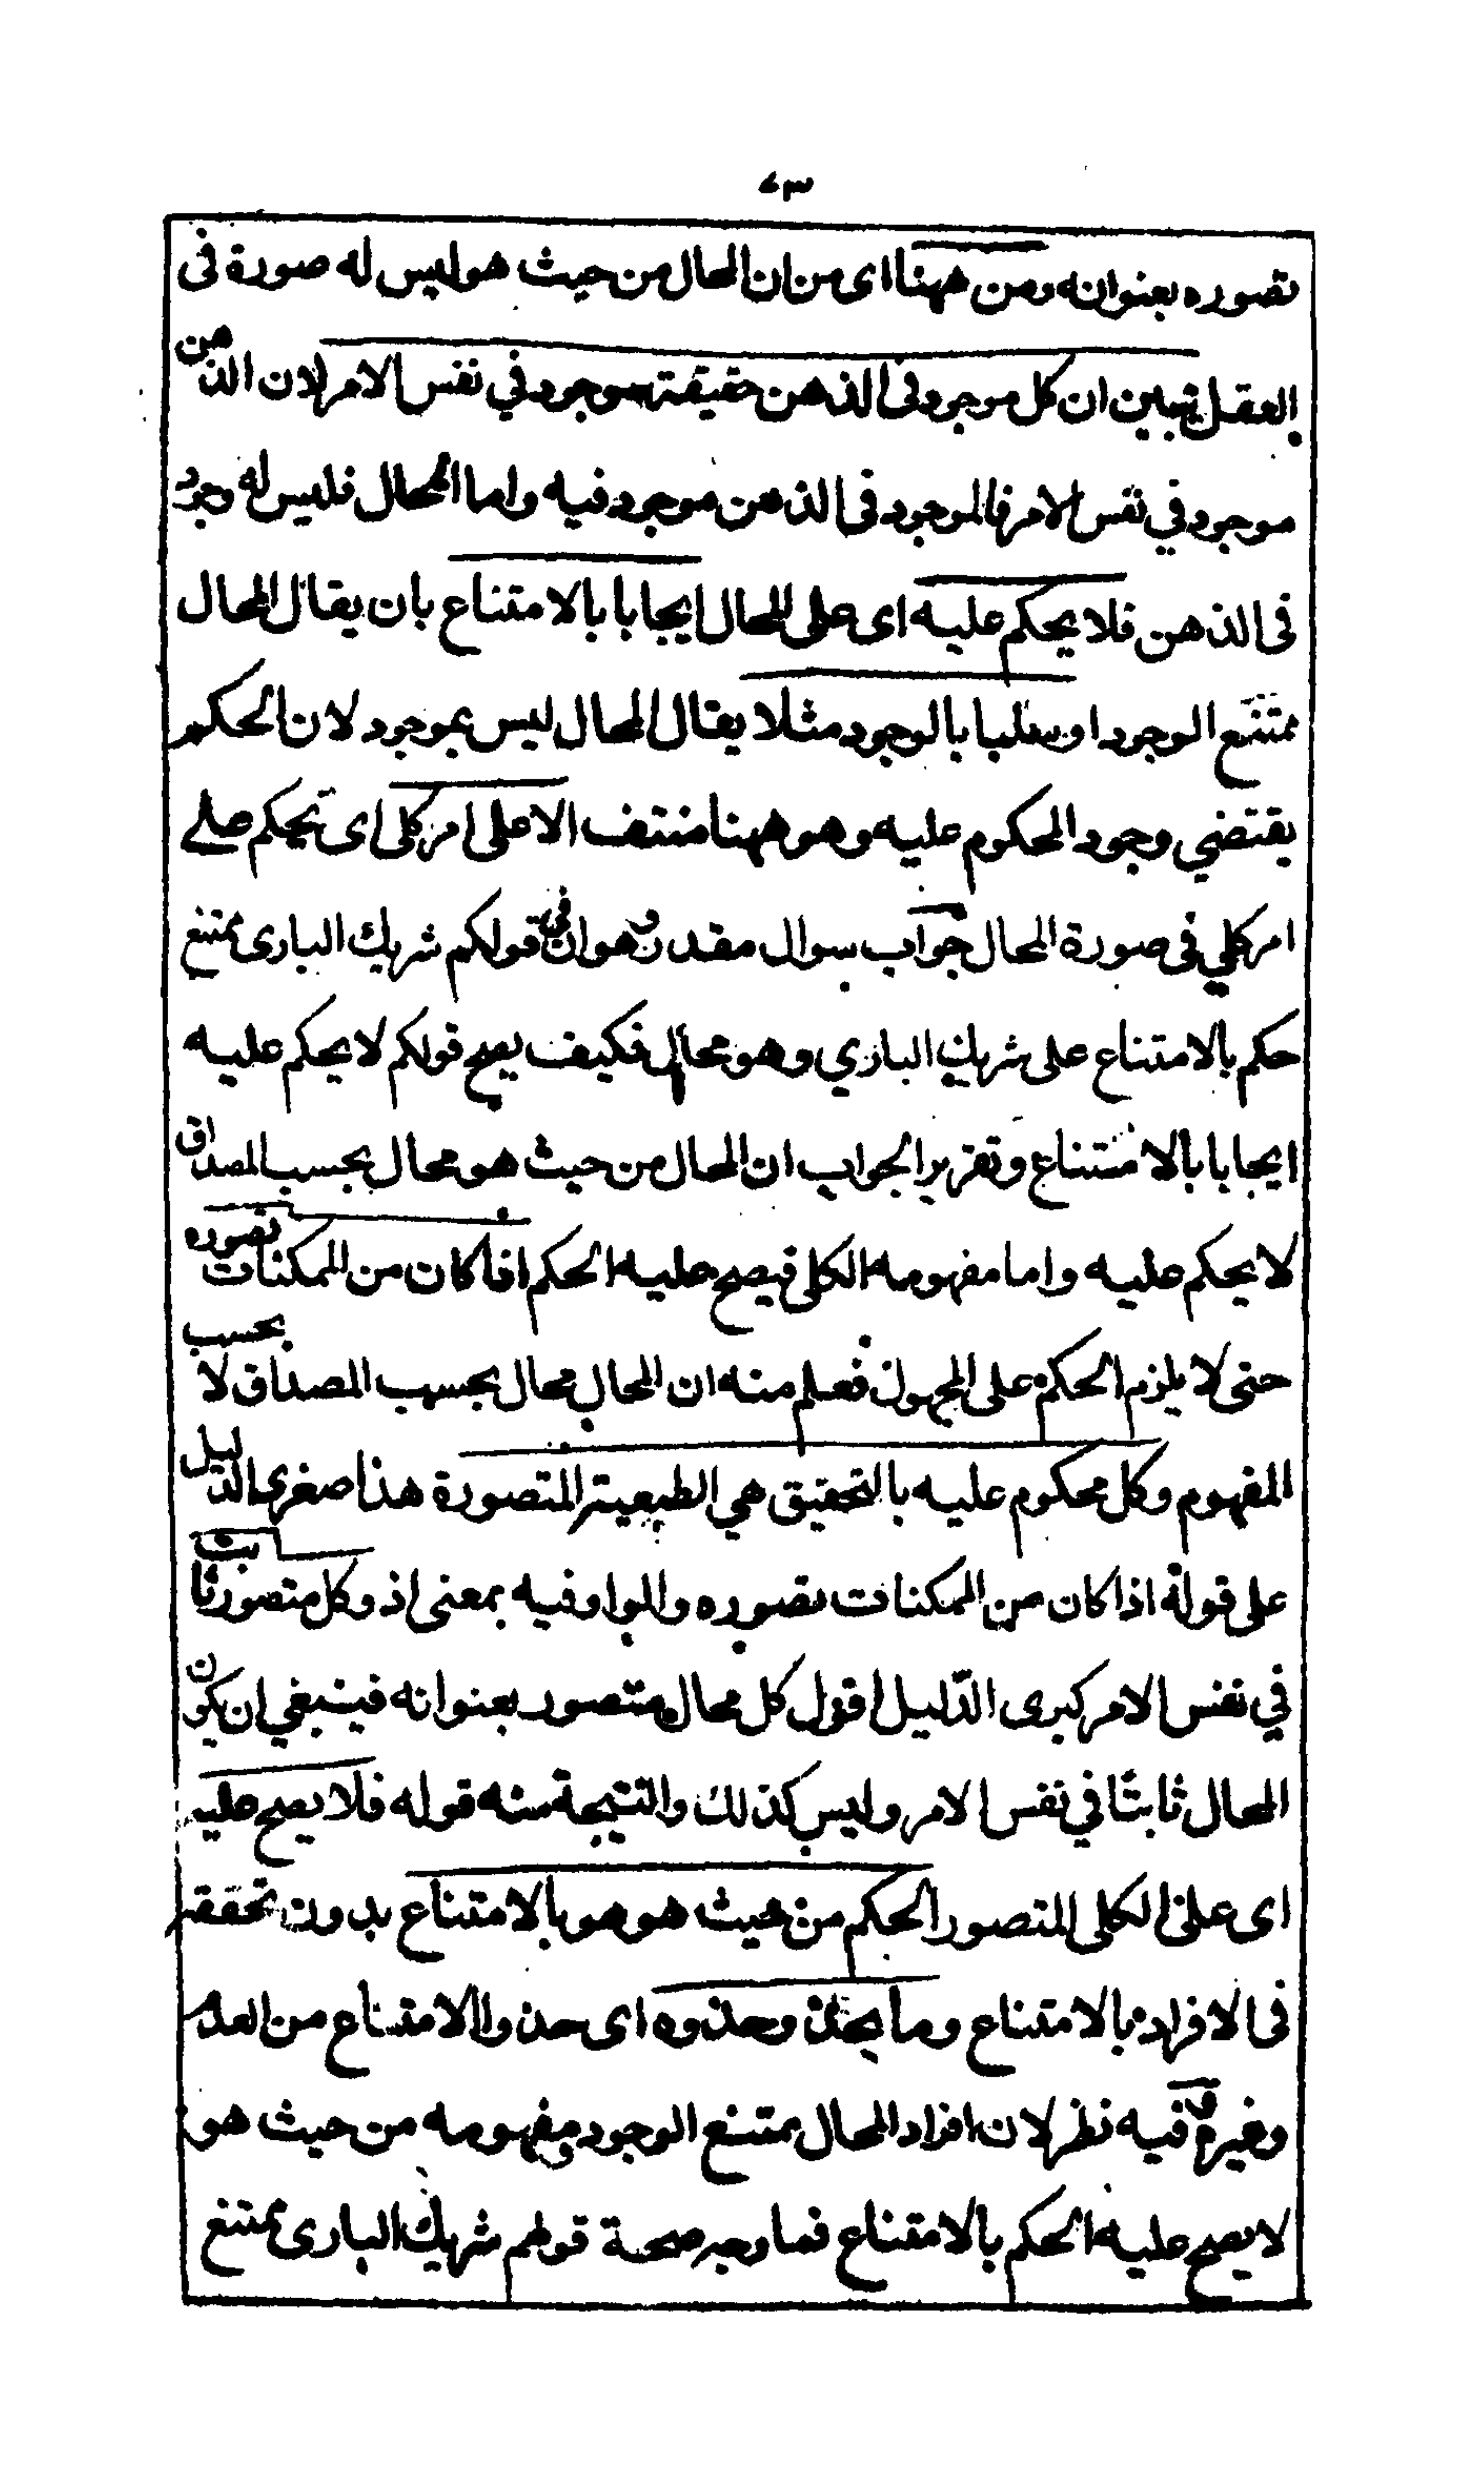 ٤٣
تصوره بعنوانه ومن ههنا اى من ان المحال من حيث هو ليس له صورة فى
العقل تبين ان كل موجود فى الذهن حقيقة موجود في نفس الامر لان الذهن
موجود في نفس الامر فالموجود فى الذهن موجود فيه واما المحال فليس له وجود
فى الذهن فلا يحكم عليه اى على المحال ايجابا بالامتناع بان يقال المحال
ممتنع الوجود او سلبا بالوجود مثلا يقال المحال ليس بموجود لان الحكم
يقتضي وجود المحكوم عليه وهو ههنا منتف الا على امر كلى اى يحكم على
امر كلي فى صورة المحال جواب سوال مقدر وهو ان في قولكم شريك البارى ممتنع
حكم بالامتناع على شريك الباري وهو محال فكيف يصح قولكم لا يحكم عليه
ايجابا بالامتناع وتقرير الجواب ان المحال من حيث هو محال بحسب المصداق
لا يحكم عليه واما مفهومه الكلى فيصح عليه الحكم اذا كان من الممكنات تصوره
حتى لا يلزم الحكم على المجهول فعلم منه ان المحال محال بحسب المصداق لا بحسب
المفهوم وكل محكوم عليه بالتحقيق هي الطبيعية المتصورة هذا صغرى الدليل
على قوله اذا كان من الممكنات تصوره والواو فيه بمعنى اذ وكل متصور ثابت
في نفس الامر كبرى الدّليل اقول كل محال متصور بعنوانه فينبغي ان يكون
المحال ثابتا في نفس الامر وليس كذلك والنتيجة منه قوله فلا يصح عليه
اى على الكلى المتصور الحكم من حيث هو هو بالامتناع بدون تحققه
فى الافراد بالامتناع وما يحذو حذوه اى حذو الامتناع من العدم
وغيره فيه نظر لان افراد المحال ممتنع الوجود ومفهومه من حيث هو
لا يصح عليه الحكم بالامتناع فما وجه صحة قولهم شريك البارى ممتنع